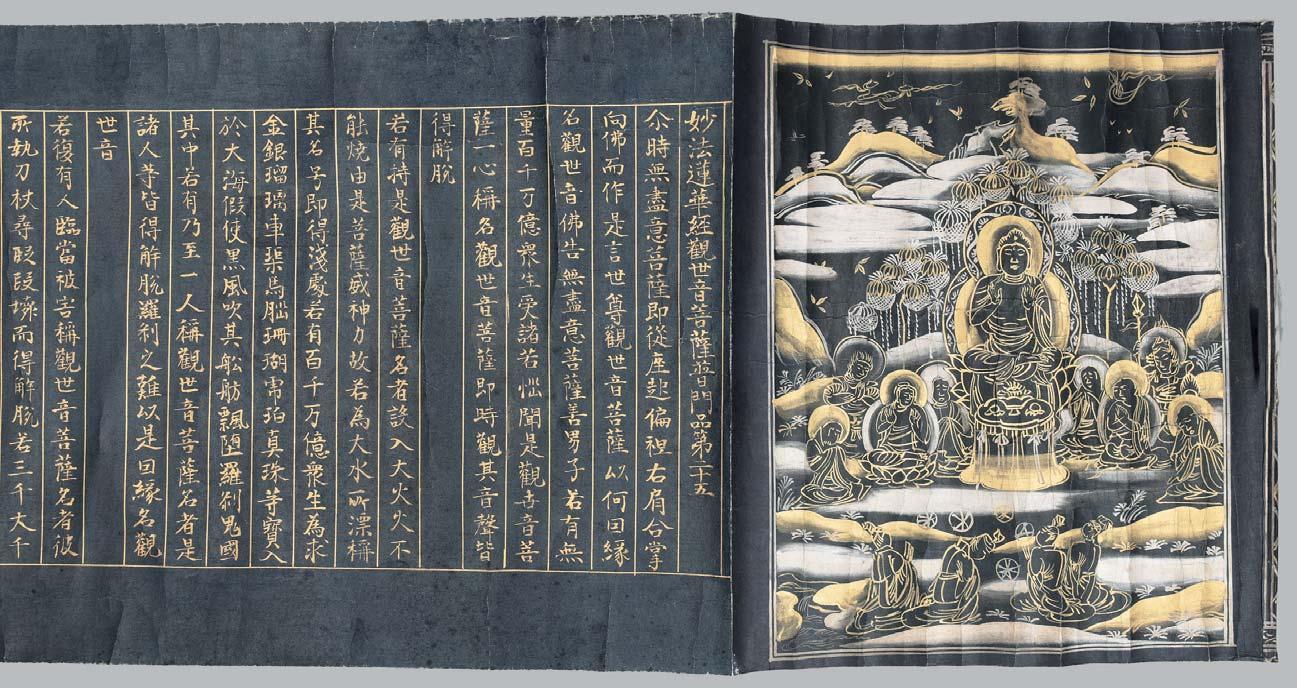 妙法蓮華經觀世音菩薩普門品第二十五
尒時無盡意菩薩即從座起偏袒右肩合掌
向佛而作是言世尊觀世音菩薩以何因縁
名觀世音佛告無盡意菩薩善男子若有無
量百千万億衆生受諸苦惱聞是觀世音菩
薩一心稱名觀世音菩薩即時觀其音聲皆
得解脱
若有持是觀世音菩薩名者設入大火火不
能燒由是菩薩威神力故若為大水所漂稱
其名号即得淺處若有百千万億衆生為求
金銀瑠璃車璖馬瑙珊瑚帚珀真珠等寶入
於大海假使黒風吹其舩舫飄堕羅刹鬼國
其中若有乃至一人稱觀世音菩薩名者是
諸人等皆得解脱羅刹之難以是因縁名觀
世音
若復有人臨當被害稱觀世音菩薩名者彼
所執刀杖尋段段壊而得解脱若三千大千